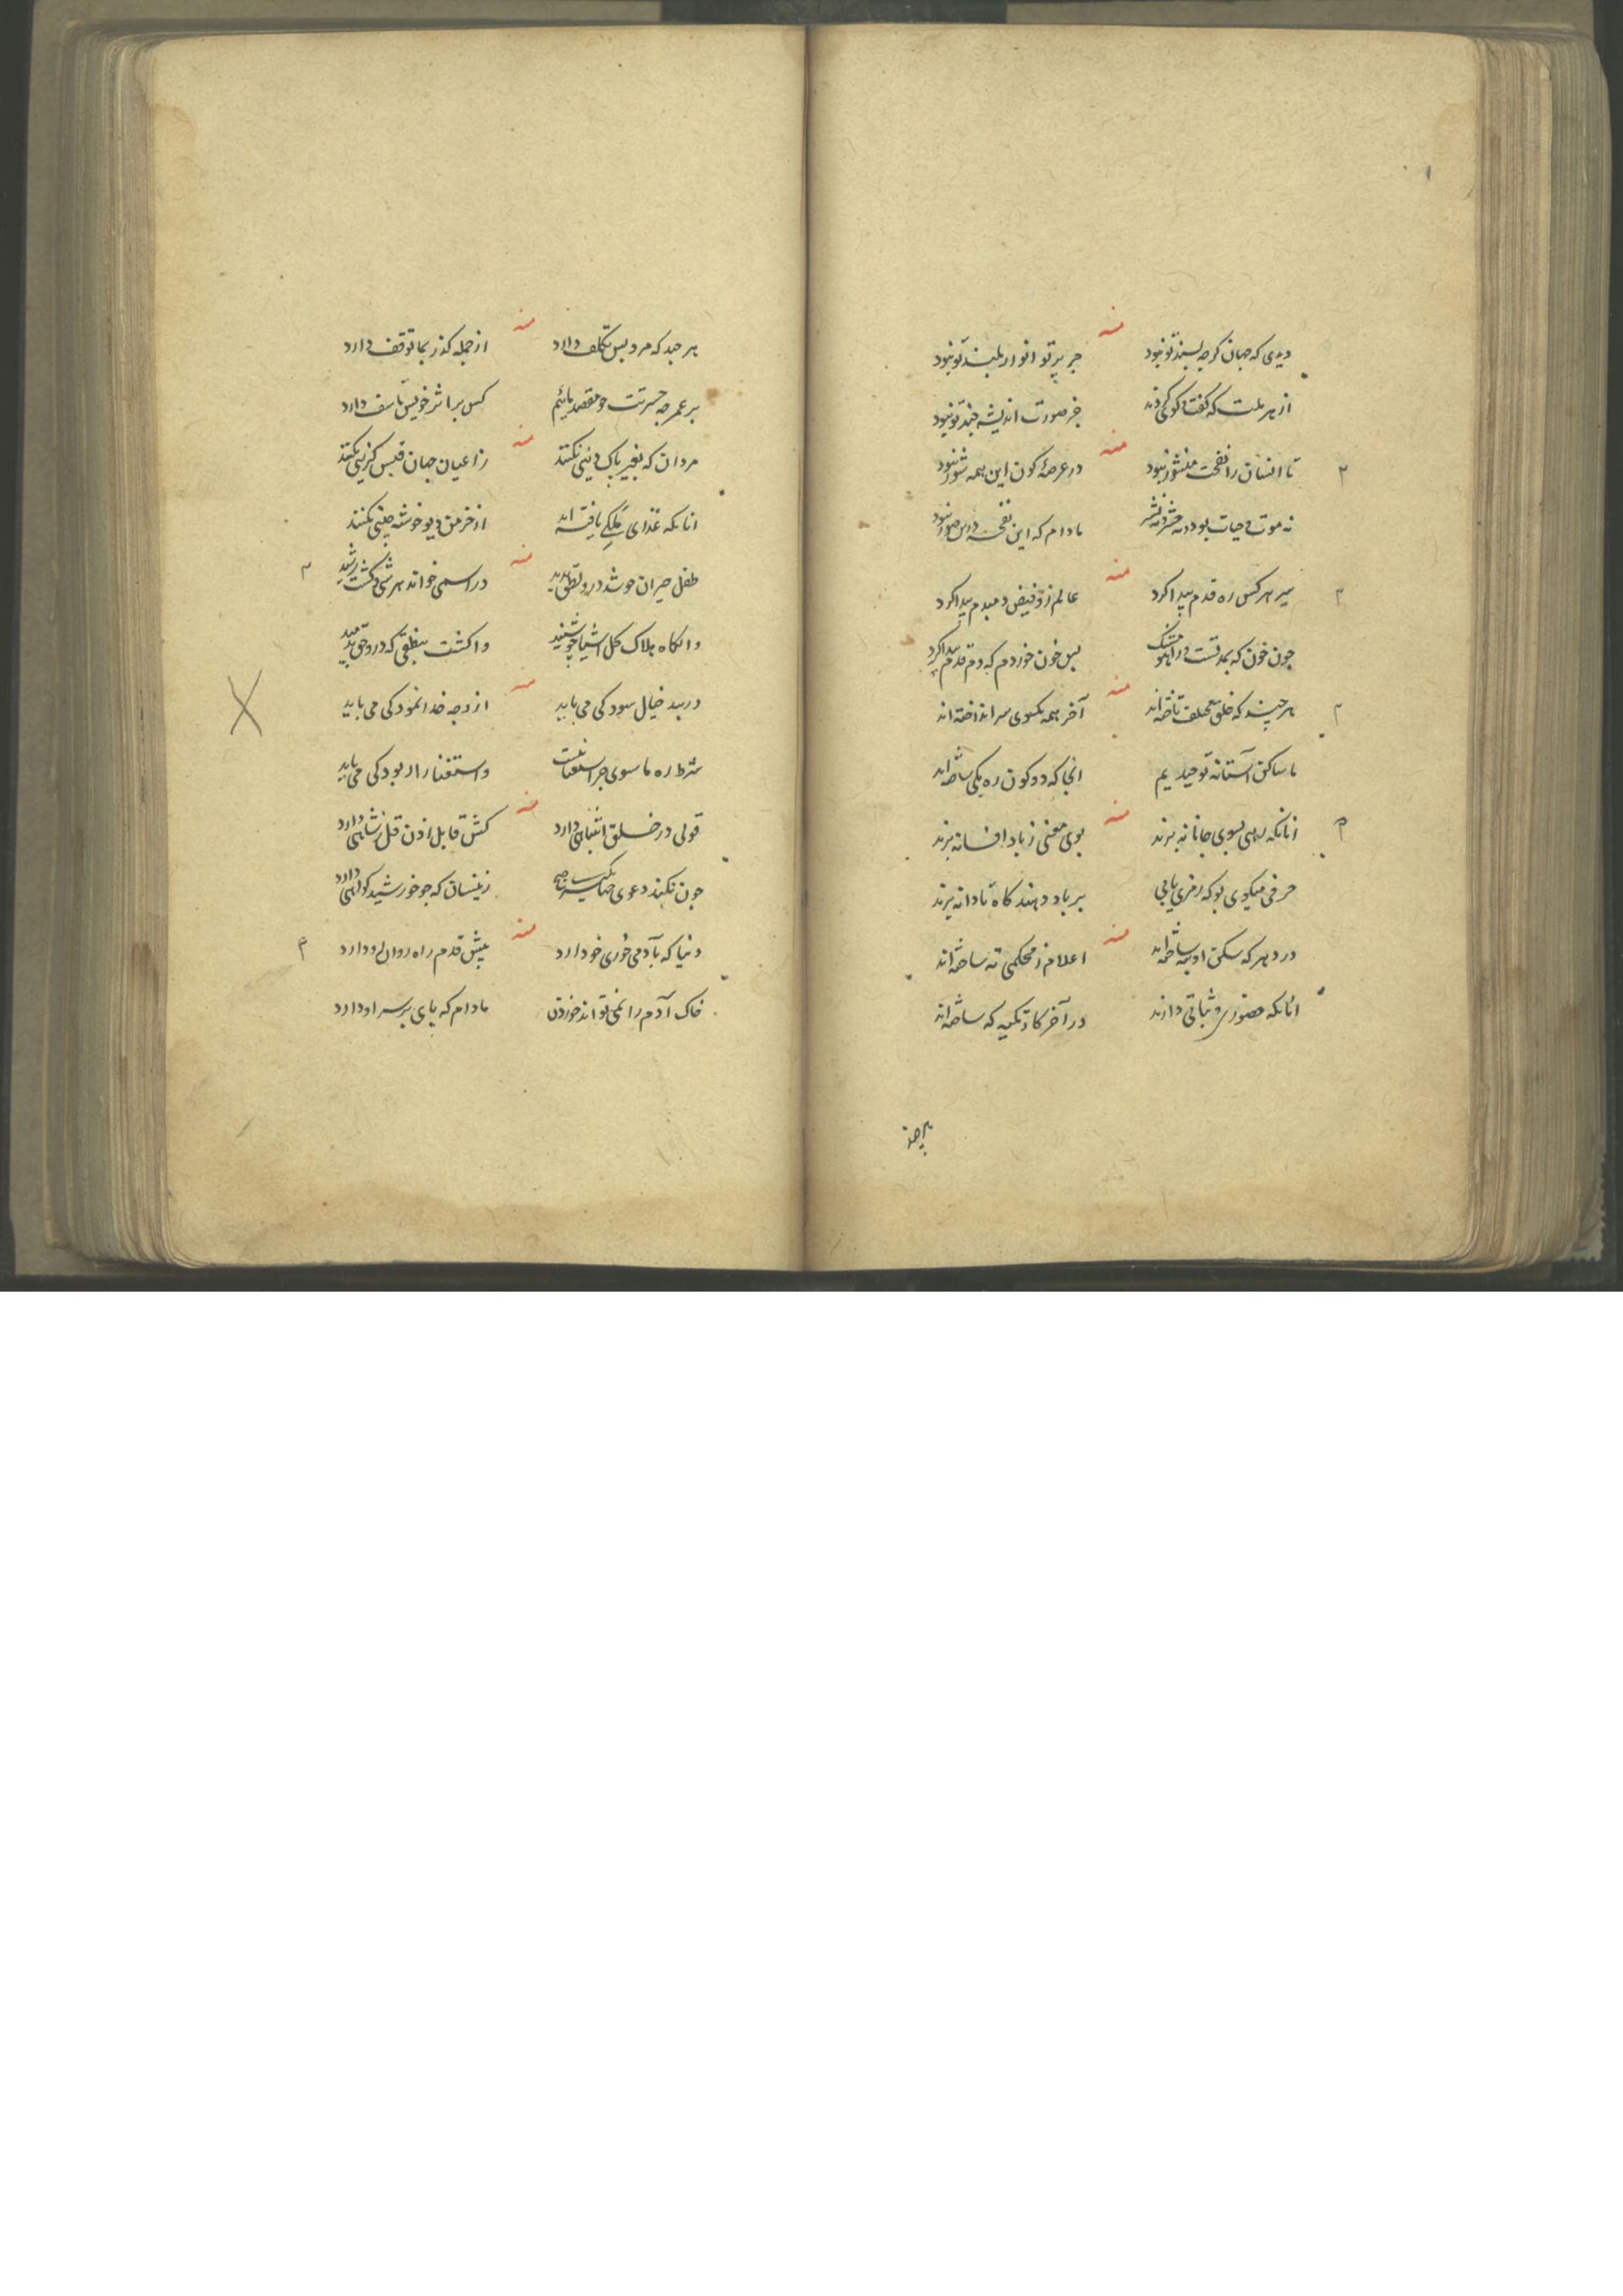 منه
دیدی که جهان کرچه پسند تو نبود جز پرتو انوار بلند تو نبود
از هر ملت که گفت و کوئی کردند جز صورت اندیشه چند تو نبود
منه
تا انسان را نفخت منشور نبود در عرصهٔ کون این همه شور نبود
نه موت و حیات بود و نه حشر و نه نشر مادام که این نفخه درین صور نبود
منه
سیر هر کس ره قدم پیدا کرد عالم زو فیض دمبدم پیدا کرد
چون خون که بمدتست در آهو مشک بس خون خوردم که دم قدم پیدا کرد
منه
هر چند که خلق مختلف تاخته‌اند آخر همه یکسوی سر انداخته‌اند
ما ساکن آستانه توحیدیم انجا که دو کون ره یکی ساخته‌اند
منه
انانکه رهی بسوی جانانه برند بوی معنی ز باد افسانه برند
حرفی میکوی بو که رمزی یابی بر باد دهند کاه تا دانه برند
منه
در دهر که سکن او به ساخته‌اند اعلام ز محکمی نه ساخته‌اند
انانکه حضور و ثباتی دارند در آخر کار تکیه که ساخته‌اند
هرچند
منه
هر چند که مرد بس تکلف دارد از جمله کذر بما توقف دارد
بر عمر چه حسرتست چو مقصد مائیم کس بر اثر خویش تأسف دارد
منه
مردان که بغیر پاک دینی نکنند ز اعیان جهان قبس کزینی نکنند
انانکه غذای ملکی یافته اند از خرمن دیو خوشه چینی نکنند
منه
طفل حیران در اسمی خواند هر شی و گشت رشید
وانگاه هلاک کل اشیا چو شنید واکشت بنطقی که در و حق
منه
در بید خیال سود کی می باید از وجه خدا نمود کی می باید
شرط ره ما سوی جز استغنا نیست و استغنا را از بود کی می باید
منه
قولی در خلق اشتباهی دارد کش قابل اذن قل ز شاهی دارد
چون نکند دعوی زینسان که چو خورشید کواهی دارد
منه
دنیا که بآدمی خوری خو دارد پیش قدم راه روان رو دارد
خاک آدم را نمی تواند خوردن مادام که پای بر سر او دارد